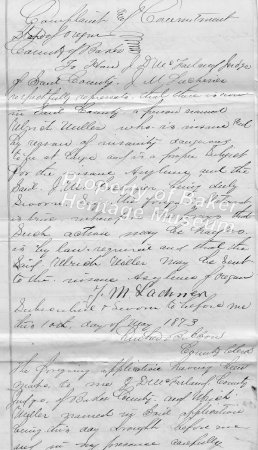 Complaint & Commitment
State of Oregon
County of Baker
To Hon J D McFarland, Judge
of Said County: J. M. Lachner
respectfully represents that there is now
in Said County a person named
Ulrich Utiller who is insane and
by reason of insanity dangerous
at large and is a proper Subject
for the insane Asylum and the
Said J. M. Lachner being duly
Sworn
is true
Such action may be
in the law required and that the
Said Ulrich Utiller may be sent
to the insane Asylum of Oregon
J. M. Lachner
Subscribed & Sworn to before me
this 10th day of May 1873
County Clerk
The forgoing application having been
made to me J D McFarland County
Judge of Baker County and Ulrich
Utiller named in Said application
being this day brought before me
and in my presence carefully
Property of Baker
Heritage Museum